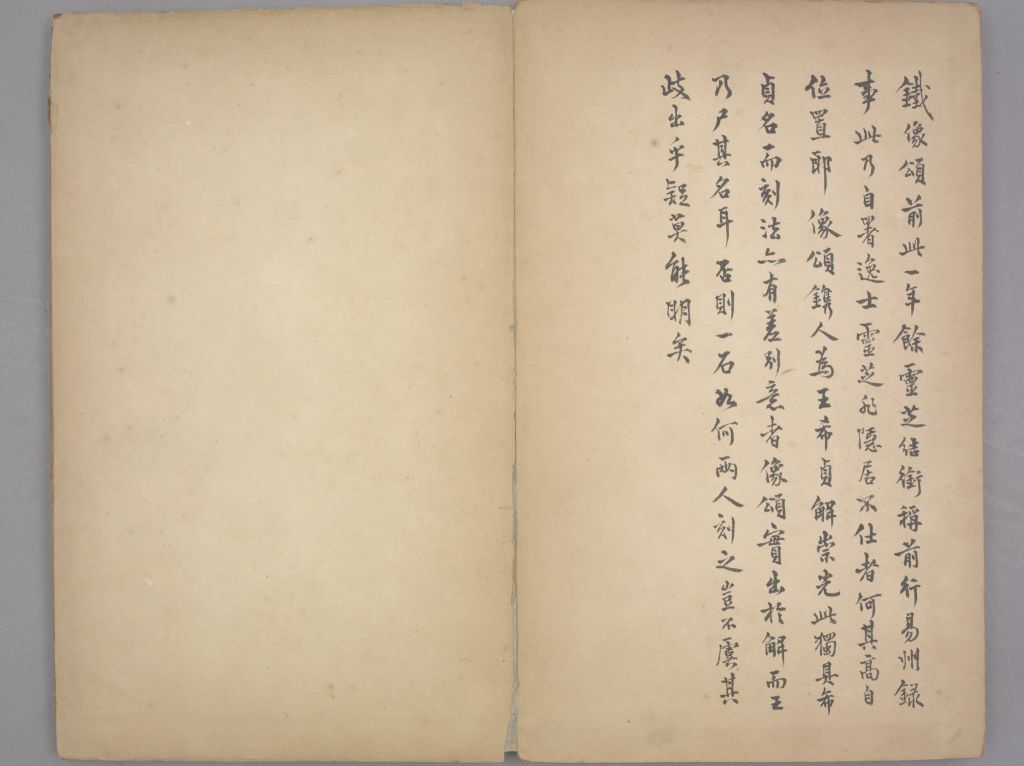 鐵像頌前此一年餘靈芝結銜稱前行易州録
事此乃自署逸士靈芝非隱居不仕者何其高自
位置耶像頌鐫人為王希貞解崇光此獨具希
貞名而刻法亦有差別意者像頌實出於解而王
乃尸其名耳否則一石如何兩人刻之豈不虞其
歧出乎疑莫能明矣